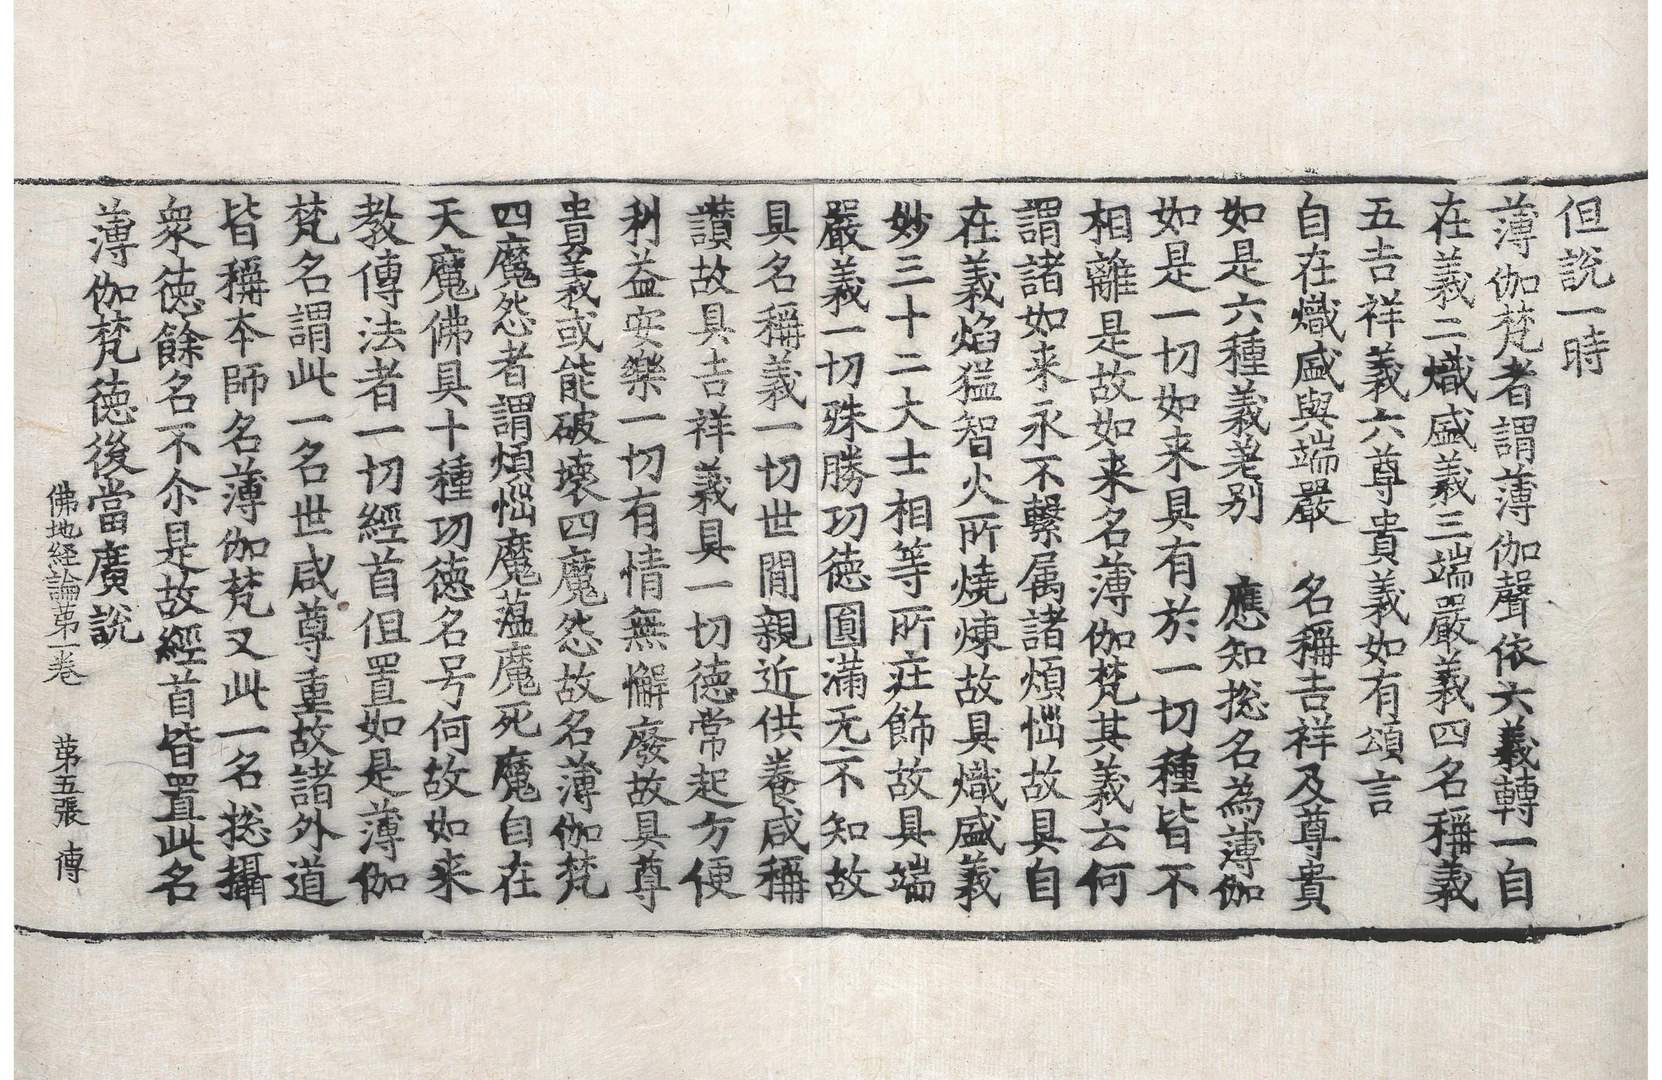 但說一時
薄伽梵者謂薄伽聲依六義轉一自
在義二熾盛義三端嚴義四名稱義
五吉祥義六尊貴義如有頌言
自在熾盛與端嚴　名稱吉祥及尊貴
如是六種義差别　應知捴名為薄伽
如是一切如来具有於一切種皆不
相離是故如来名薄伽梵其義云何
謂諸如来永不繫属諸煩惱故具自
在義焰猛智火所燒煉故具熾盛義
妙三十二大士相等所莊飾故具端
嚴義一切殊勝功德圓滿无不知故
具名稱義一切世閒親近供養咸稱
讚故具吉祥義具一切德常起方便
利益安樂一切有情無懈廢故具尊
貴義或能破壞四魔怨故名薄伽梵
四魔怨者謂煩惱魔蕴魔死魔自在
天魔佛具十種功德名号何故如来
教傳法者一切經首但置如是薄伽
梵名謂此一名世咸尊重故諸外道
皆稱本師名薄伽梵又此一名捴攝
衆德餘名不尒是故經首皆置此名
薄伽梵德後當廣說
佛地経論苐一卷　苐五張　傳